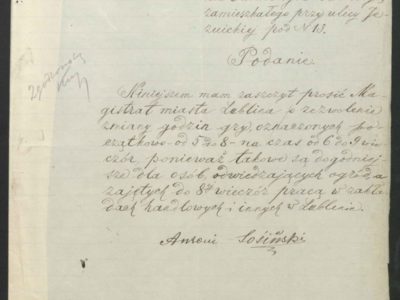 zamieszkałego przy ulicy Je-
zuickiej pod N 13.
Podanie
Niniejszem mam zaszczyt prosić Ma-
gistrat miasta Lublina o zezwolenie
zmiany godzin gry, oznaczonych po-
czątkowo od 5 do 8 - na czas od 6 do 9 wie-
czór, ponieważ takowe są dogodniej-
sze dla osób, odwiedzających ogród, a
zajętych do 8ej wieczór pracą w zakła-
dach handlowych i innych w Lublinie.
Antoni Sosiński